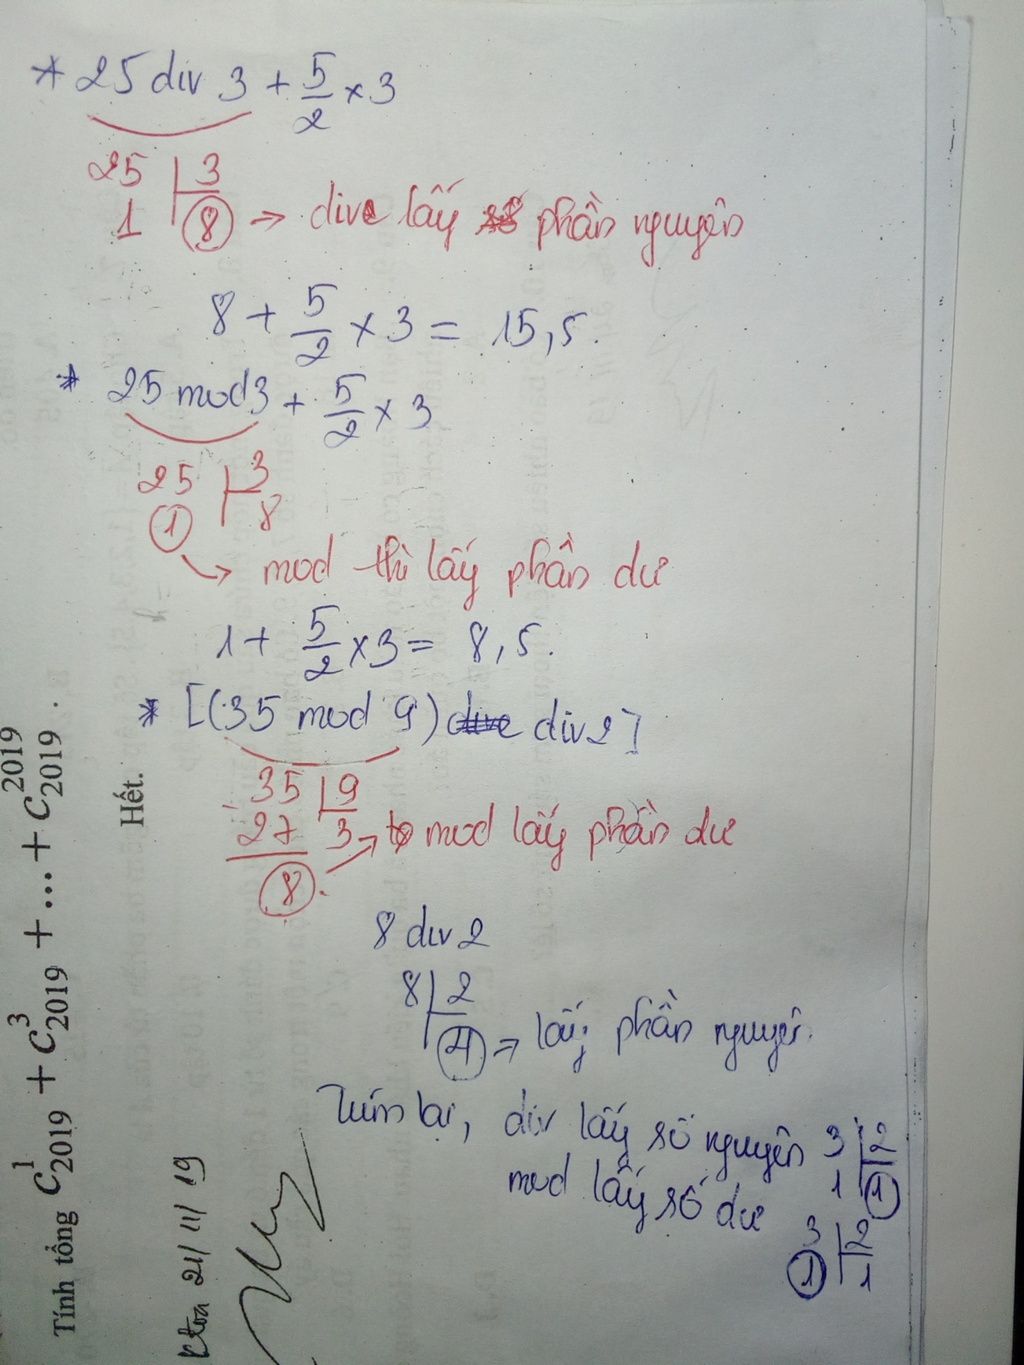 * 25 div 3 + 5/2 × 3
25 | 3
1 | 8 → dive lấy phần nguyên
8 + 5/2 × 3 = 15,5.
* 25 mod 3 + 5/2 × 3
25 | 3
1 | 8
→ mod thì lấy phần dư
1 + 5/2 × 3 = 8,5.
* [(35 mod 9) dive div 2]
35 | 9
27 3 → mod lấy phần dư
8
8 div 2
8 | 2
4 → lấy phần nguyên.
Túm lại, div lấy số nguyên 3 | 2
1 | 1
mod lấy số dư
3 | 2
1 | 1
Tính tổng C¹₂₀₁₉ + C³₂₀₁₉ + ... + C²⁰¹⁹₂₀₁₉ .
Hết.
Khoa 21/11/19